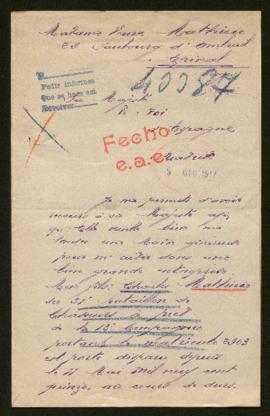 Madame Veuve Mathieu
Faubourg d'
Epinal
40087
Pedir informes
Que se hace en
Devolver
Sa Majesté
Le Roi
d'Espagne
Fecho
e.a.e.
Madrid
Je me permets d'avoir
recours à sa Majesté afin
qu'Elle veuille bien me
tendre une Main généreuse
pour m'aider dans une
bien grande
Mon fils Charles Mathieu
du 31e bataillon de
Chasseurs à pied
de la Compagnie
portant le matricule 3903
est porté disparu depuis
le 11 Mai mil neuf cent
quinze, au cours de durs